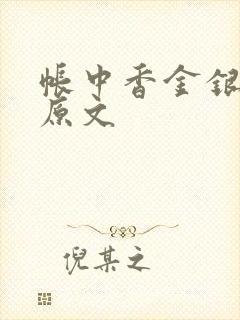 帐中香金银
原文
倪某之